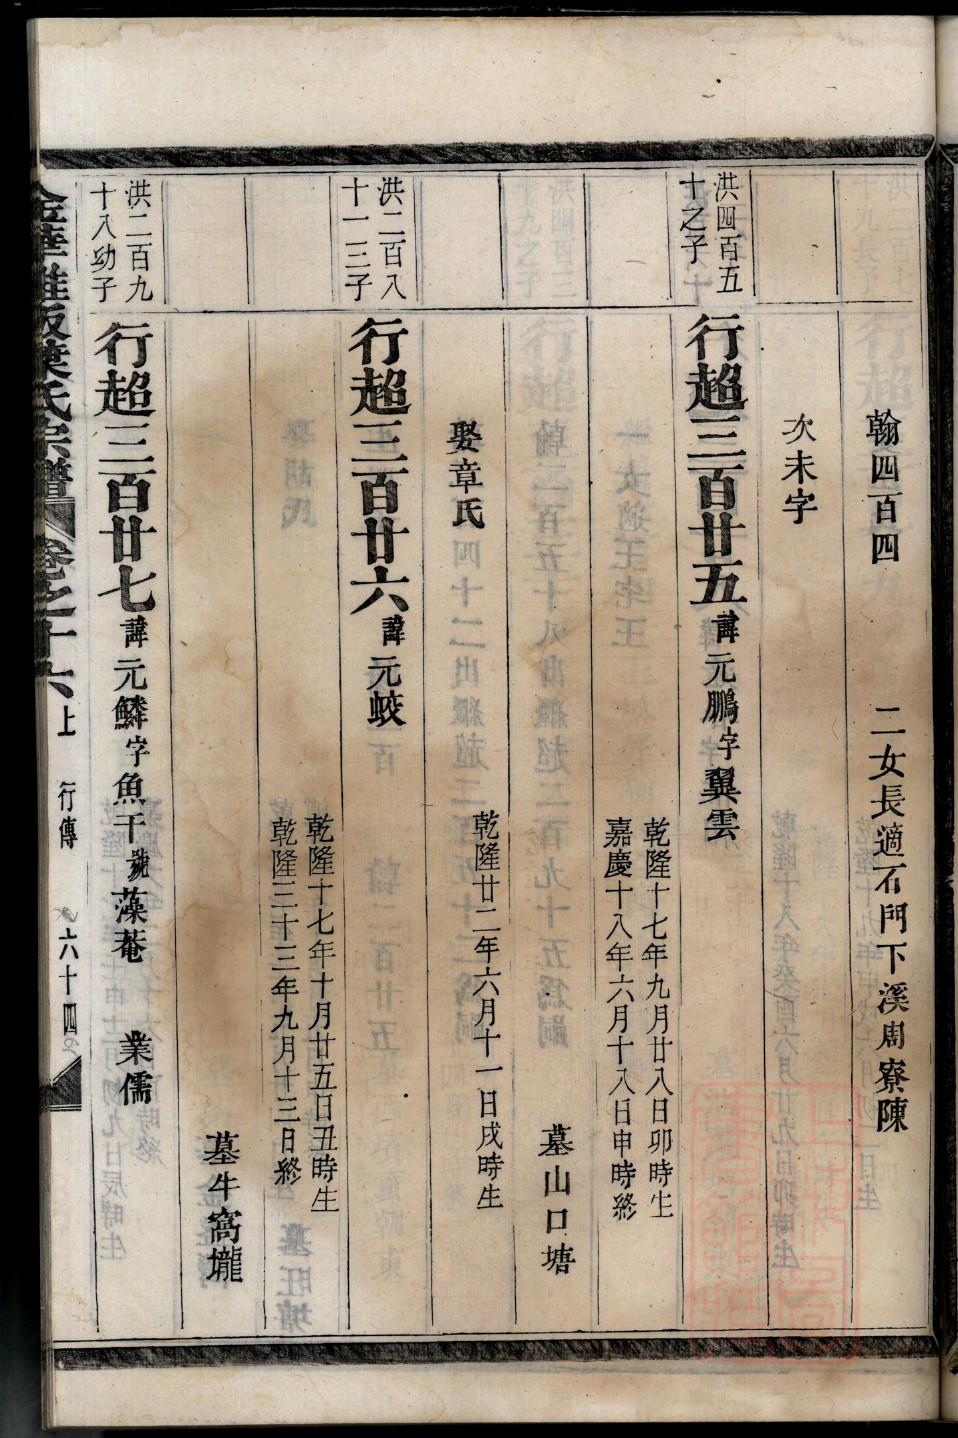 翰四百四　二女長適石門下溪周寮陳
次未字
洪四百五
十之子
行超三百廿五諱元鵬字翼雲
乾隆十七年九月廿八日卯時生
嘉慶十八年六月十八日申時終
墓山口塘
娶章氏　乾隆廿二年六月十一日戌時生
洪二百八
十一三子
行超三百廿六諱元蛟
乾隆十七年十月廿五日丑時生
乾隆三十三年九月十三日終
墓牛窩壠
洪二百九
十八幼子
行超三百廿七諱元鱗字魚千號藻菴　業儒
葉氏宗譜　卷之十六上　行傳　六十四